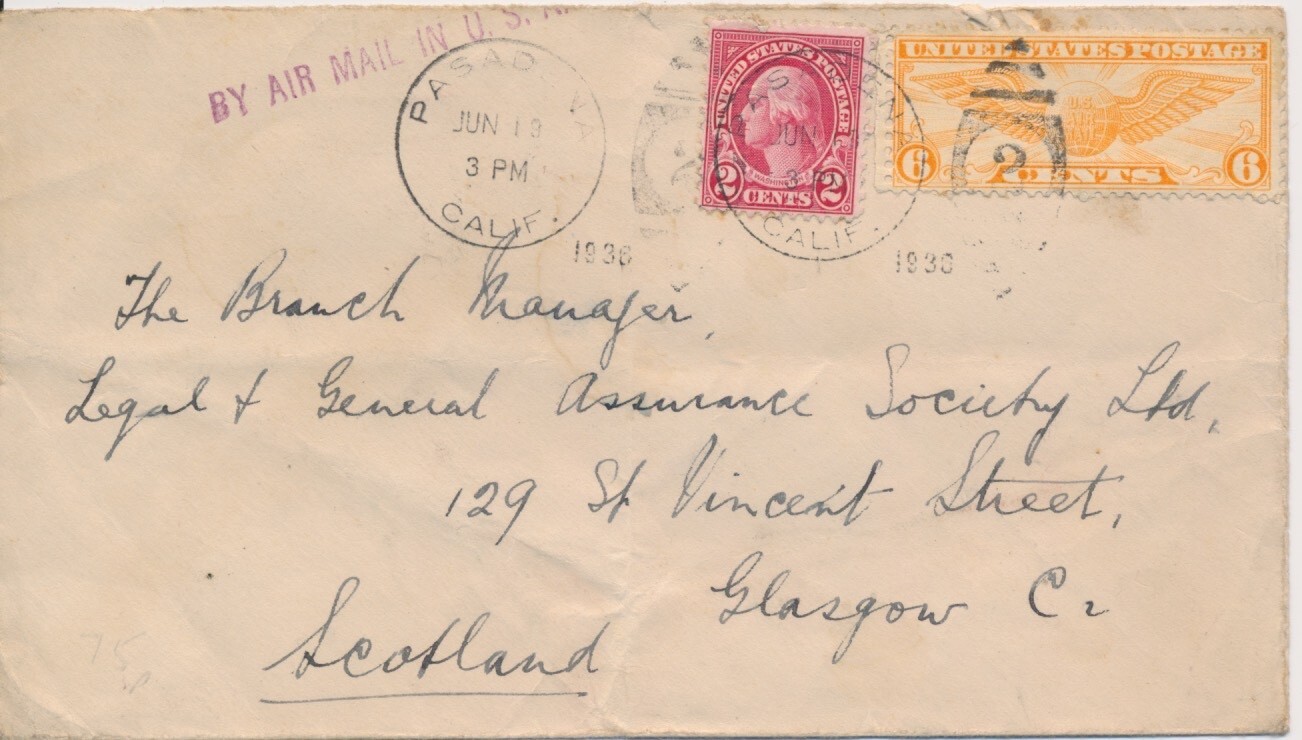 BY AIR MAIL IN U. S.
PASADENA
JUN 19
3 PM
CALIF.
1936
UNITED STATES POSTAGE
WASHINGTON
2 CENTS 2
JUN
3 PM
CALIF.
1936
UNITED STATES POSTAGE
U.S.
6 CENTS 6
2
The Branch Manager,
Legal & General Assurance Society Ltd,
129 St Vincent Street,
Glasgow C2
Scotland
75